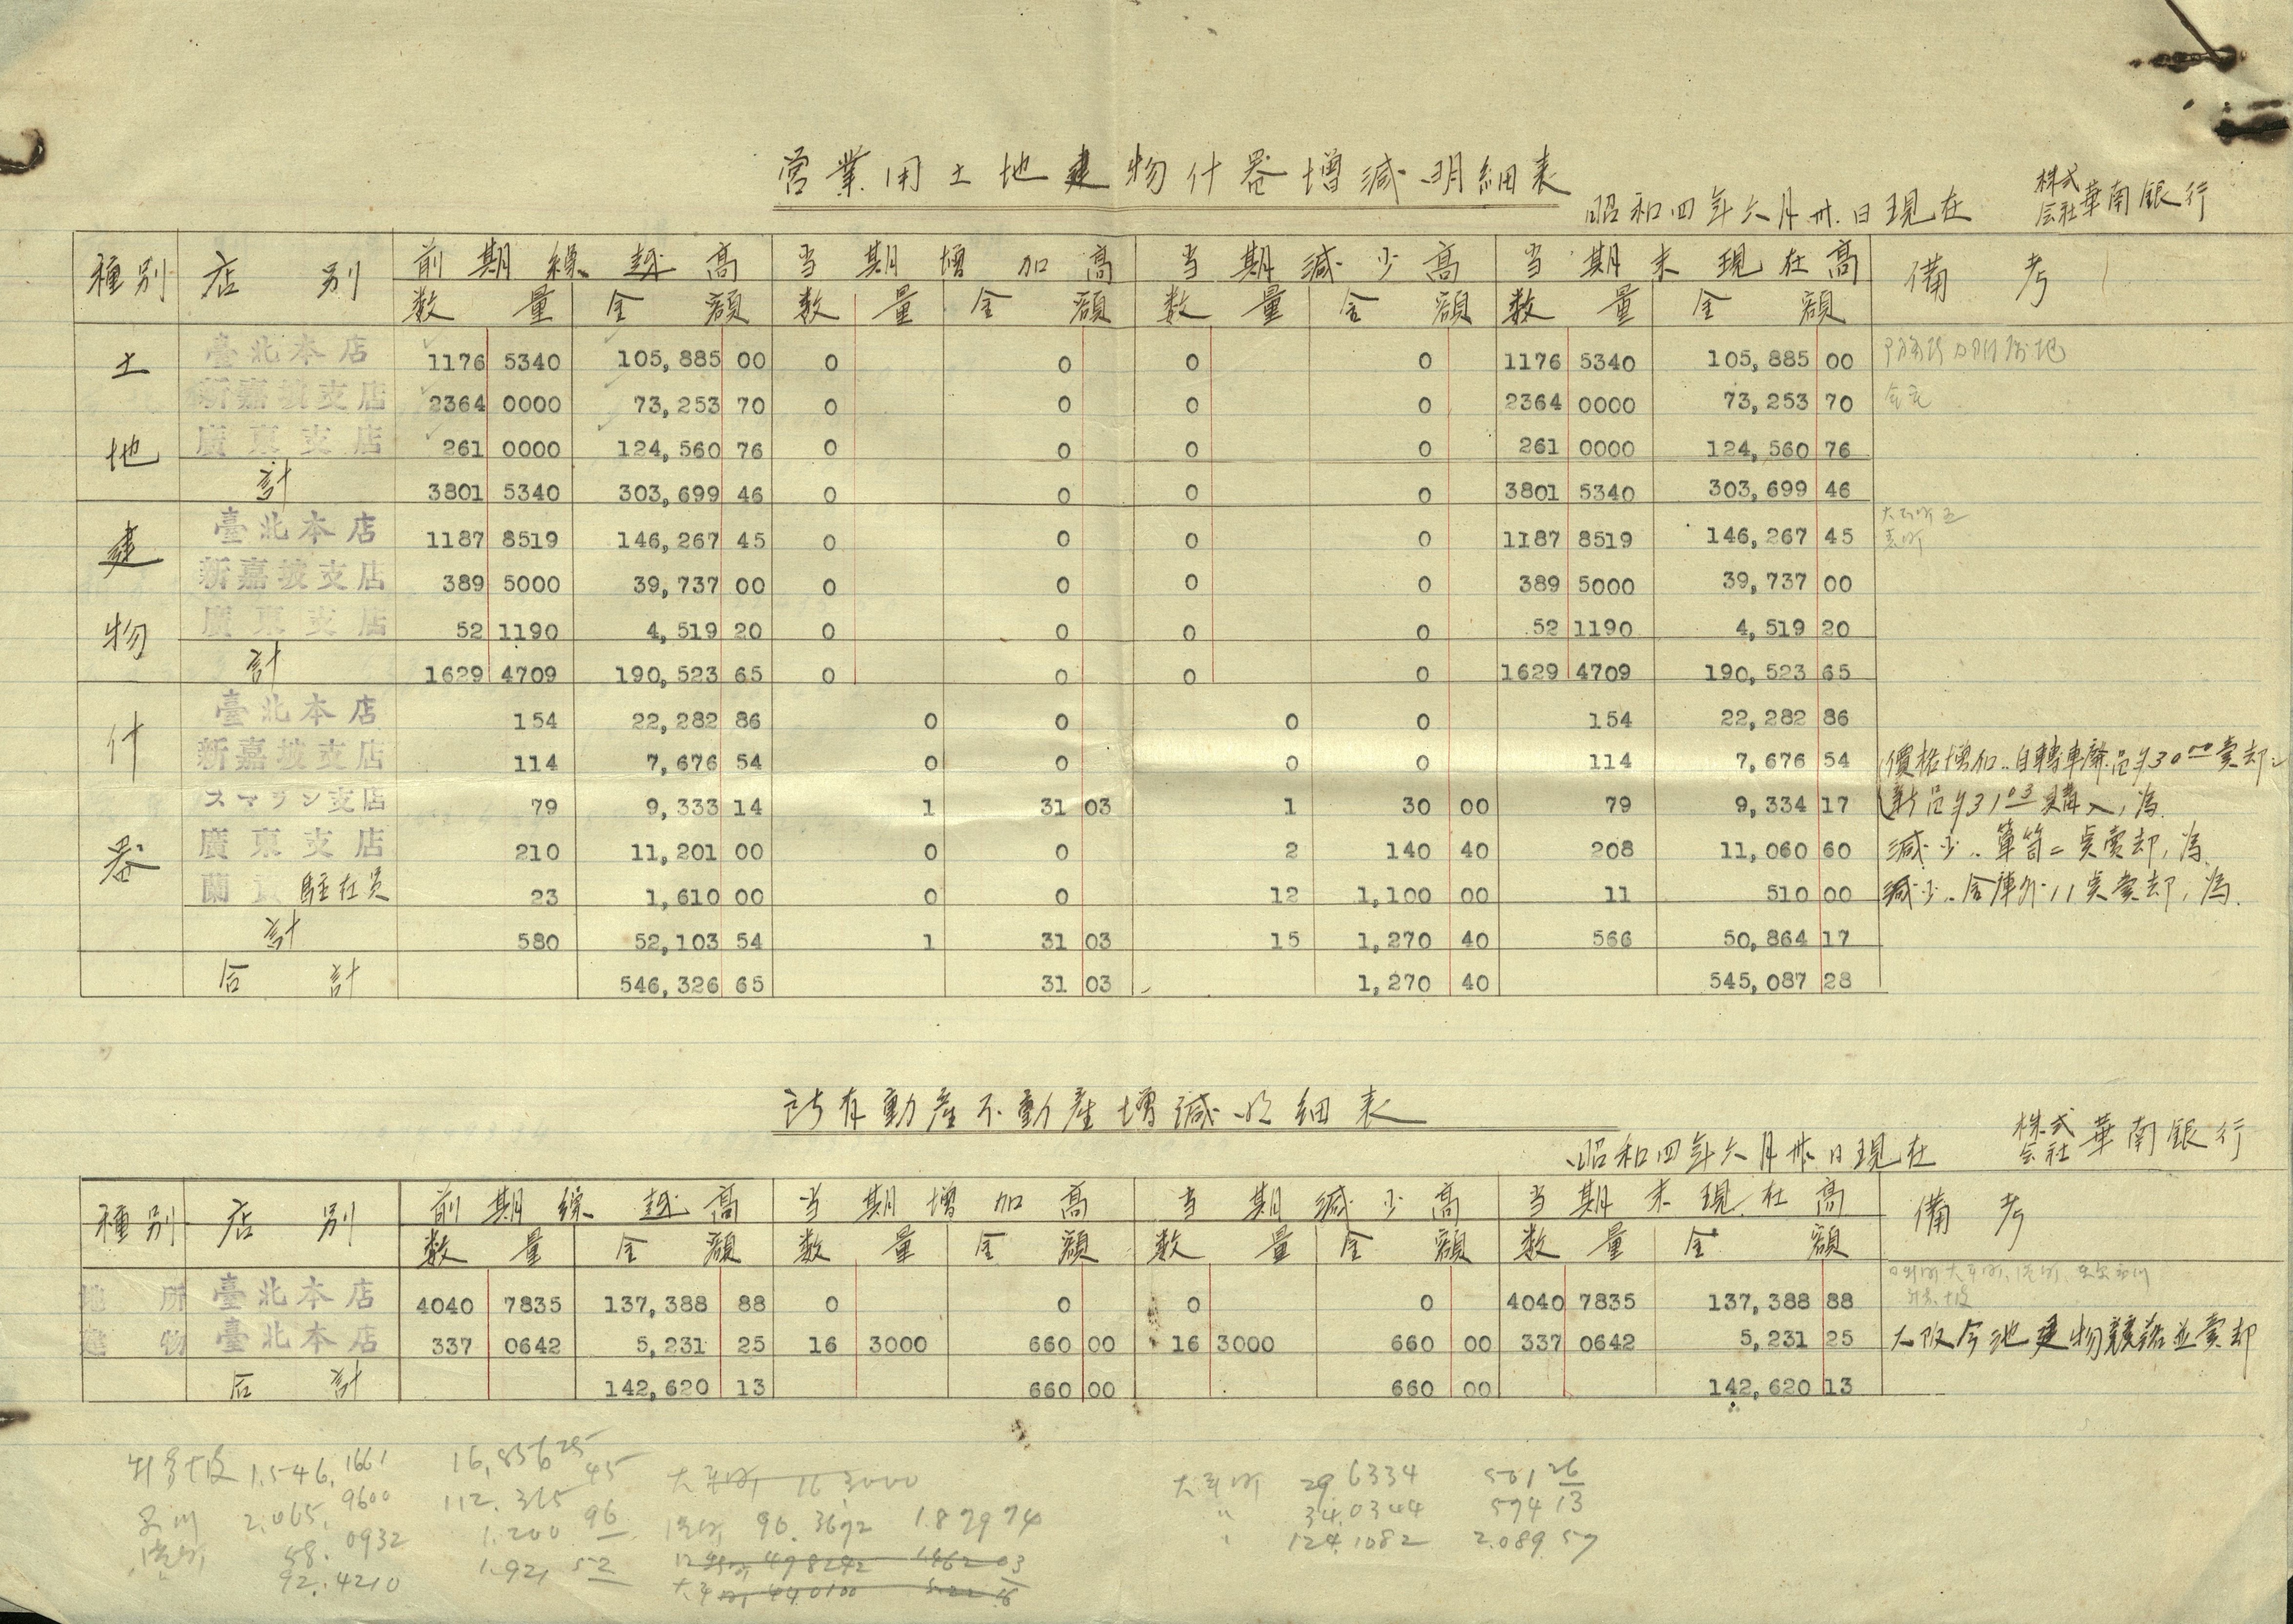 営業用土地建物什器増減明細表
昭和四年六月卅日現在 株式会社華南銀行
種別 店別 前期繰越高 当期増加高 当期減少高 当期末現在高 備考
数量 金額 数量 金額 数量 金額 数量 金額
土地 臺北本店 1176 5340 105,885 00 0 0 0 0 1176 5340 105,885 00
新嘉坡支店 2364 0000 73,253 70 0 0 0 0 2364 0000 73,253 70
廣東支店 261 0000 124,560 76 0 0 0 0 261 0000 124,560 76
計 3801 5340 303,699 46 0 0 0 0 3801 5340 303,699 46
建物 臺北本店 1187 8519 146,267 45 0 0 0 0 1187 8519 146,267 45
新嘉坡支店 389 5000 39,737 00 0 0 0 0 389 5000 39,737 00
廣東支店 52 1190 4,519 20 0 0 0 0 52 1190 4,519 20
計 1629 4709 190,523 65 0 0 0 0 1629 4709 190,523 65
什器 臺北本店 154 22,282 86 0 0 0 0 154 22,282 86
新嘉坡支店 114 7,676 54 0 0 0 0 114 7,676 54 價格増加 自轉車 品¥30.00賣却
スマラン支店 79 9,333 14 1 31 03 1 30 00 79 9,334 17 新品¥31.03購入ノ為
廣東支店 210 11,201 00 0 0 2 140 40 208 11,060 60 減少 箪笥二点賣却ノ為
蘭 駐在員 23 1,610 00 0 0 12 1,100 00 11 510 00 減少 金庫外11点賣却ノ為
計 580 52,103 54 1 31 03 15 1,270 40 566 50,864 17
合計 546,326 65 31 03 1,270 40 545,087 28
所有動産不動産増減明細表
昭和四年六月卅日現在 株式会社華南銀行
種別 店別 前期繰越高 当期増加高 当期減少高 当期末現在高 備考
数量 金額 数量 金額 数量 金額 数量 金額
地所 臺北本店 4040 7835 137,388 88 0 0 0 0 4040 7835 137,388 88
建物 臺北本店 337 0642 5,231 25 16 3000 660 00 16 3000 660 00 337 0642 5,231 25 建物競落並賣却
合計 142,620 13 660 00 660 00 142,620 13
1,546.1661 16,856 25
2,065.9600 112,365 45
58.0932 1,200 96
92.4210 1,921 52
16 3000
96.3672 1,879 74
29.6334 501 26
34.0344 574 13
124.1082 2,089.57